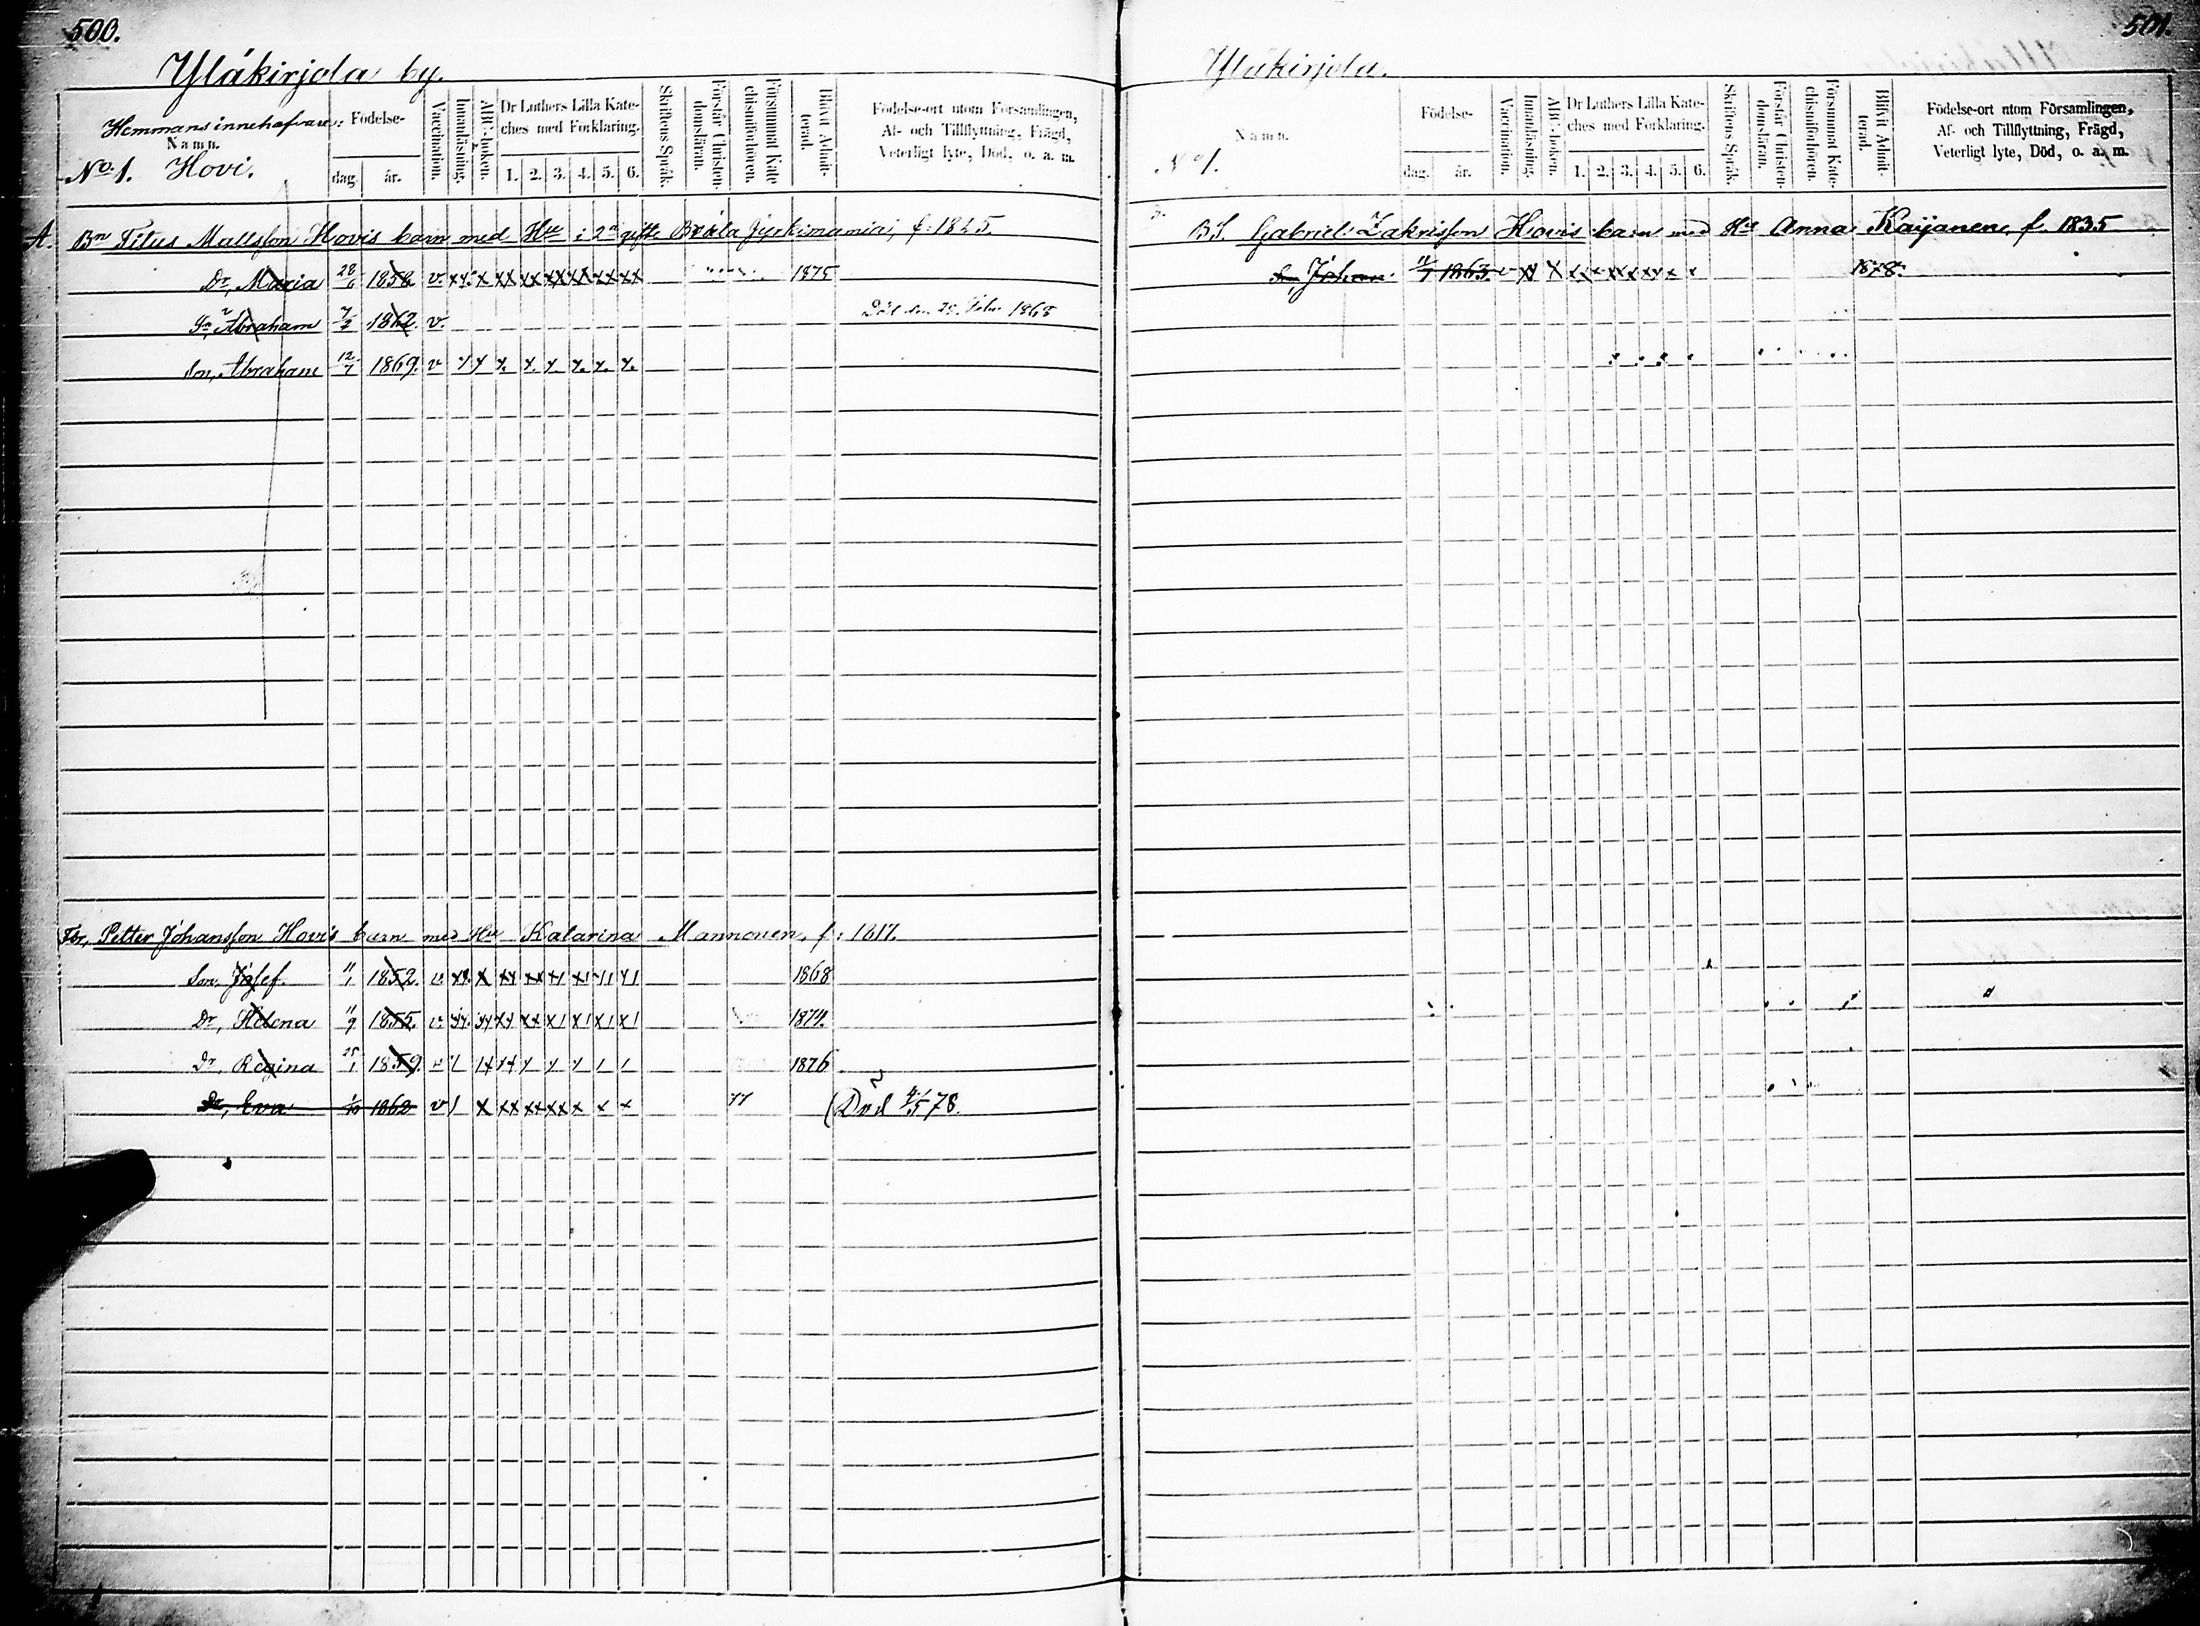 500.
Yläkirjola by.
Hemmansinnehafvare:
Namn.
No. 1. Hovi.
Födelse-
dag. år.
Vaccination.
Innanläsning.
ABC-boken.
Dr Luthers Lilla Kate-
ches med Förklaring.
1. 2. 3. 4. 5. 6.
Skriftens Språk.
Förstår Christen-
domsläran.
Försummat Kate-
chismiförhören.
Blifvit Admit-
terad.
Födelse-ort utom Församlingen,
Af- och Tillflyttning, Frägd,
Veterligt lyte, Död, o. a. m.
A. Bn Titus Mattsson Hovis barn med Hu i 2a gifte Beata Jyrkimamia, f: 1825.
Dr, Maria 28/6 1858 v. 1875
Sn, Abraham 7/2 1862. v. Död den 20. Febr 1868
Son, Abraham 12/7 1869. v
För, Petter Johansson Hovi's barn med Hu Katarina Mannonen, f: 1817.
Son, Josef 11/1 1852. v. 1868
Dr, Helena 11/9 1855. v. 1874.
Dr, Regina 25/1 1859. v 1876
Dr, Eva 1/10 1862 v Död /5 78.
501.
Yläkirjola.
Namn.
No 1.
Födelse-
dag. år.
Vaccination.
Innanläsning.
ABC-boken.
Dr Luthers Lilla Kate-
ches med Förklaring.
1. 2. 3. 4. 5. 6.
Skriftens Språk.
Förstår Christen-
domsläran.
Försummat Kate-
chismiförhören.
Blifvit Admit-
terad.
Födelse-ort utom Församlingen,
Af- och Tillflyttning, Frägd,
Veterligt lyte, Död, o. a. m.
BS. Gabriel Zakrisson Hovis barn med Hu Anna Kaijanen, f. 1835
Sn, Johan 11/7 1863 v 1878.